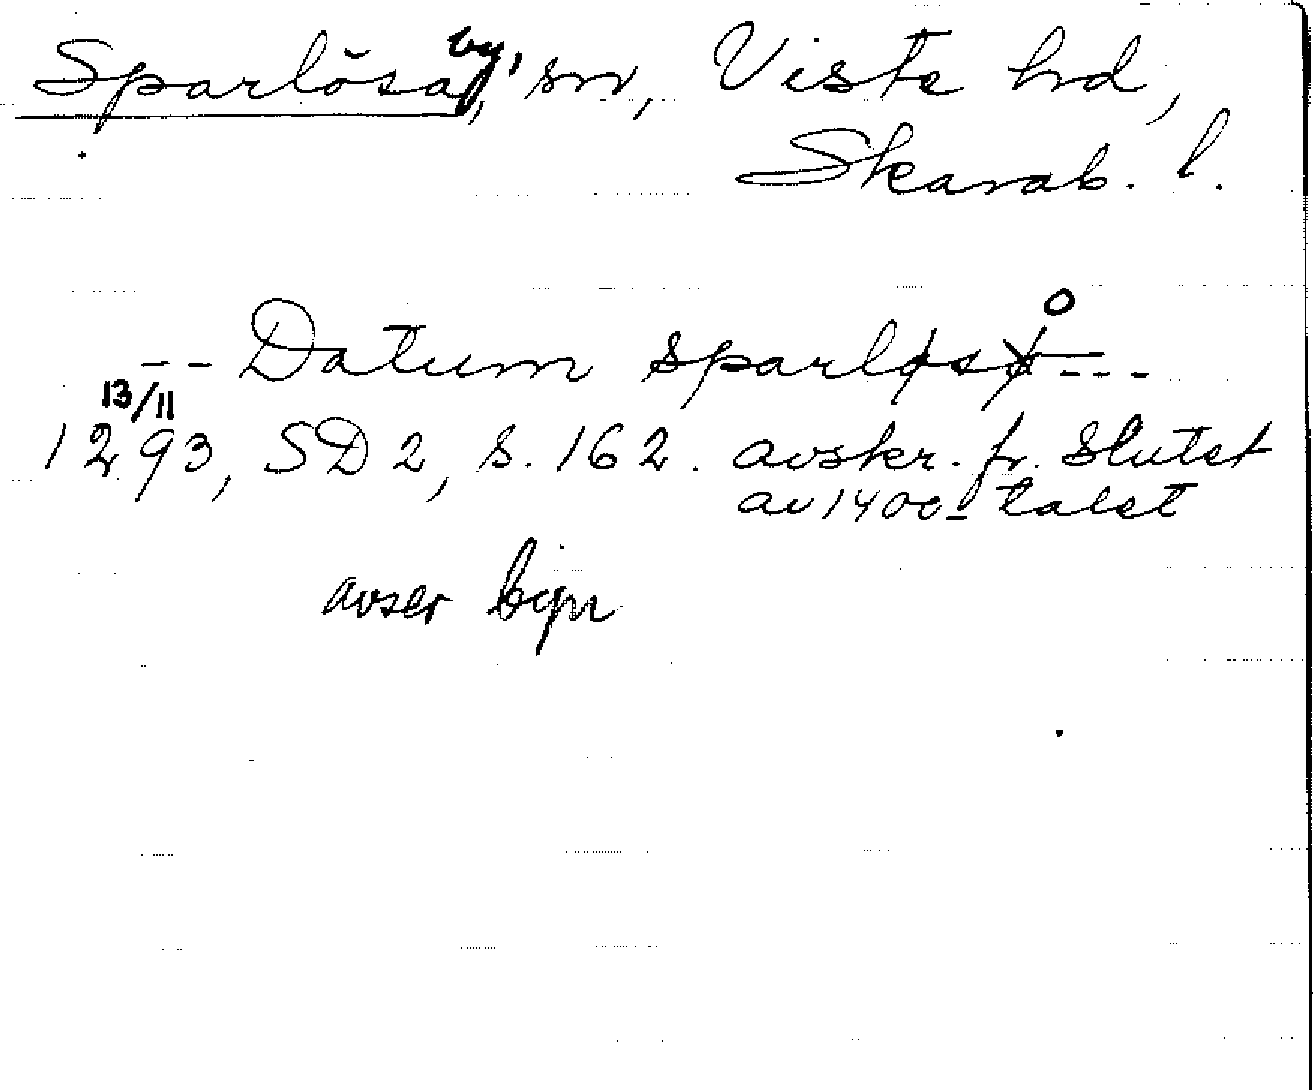 Sparlösa, by, sn, Viste hd,
Skarab. l.
-- Datum sparløsø ---
13/11
1293, SD 2, s. 162. avskr. fr. slutet
av 1400-talet
avser byn